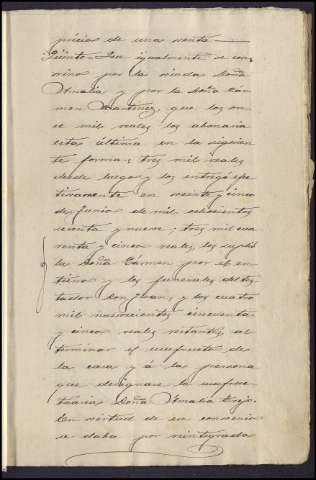 nicios de una venta
Quinto = Que igualmente se con
vino por la viuda Doña
Amalia y por la Doña Cár
men Martinez, que los on
ce mil reales los abonaria
esta última en la siguien
te forma; tres mil reales
desde luego y los entregó efe
tivamente en veinte y cinco
de Junio de mil ochocientos
sesenta y nueve; tres mil cua
renta y cinco reales, los suplió
la Doña Cármen por el en
tierro y los funerales del tes
tador Don Juan, y los cuatro
mil novecientos cincuenta
y cinco reales restantes al
terminar el usufructo de
la casa y á la persona
que designare la usufruc
tuaria Doña Amalia Trejo.
En virtud de ese convenio
se daba por reintegrada